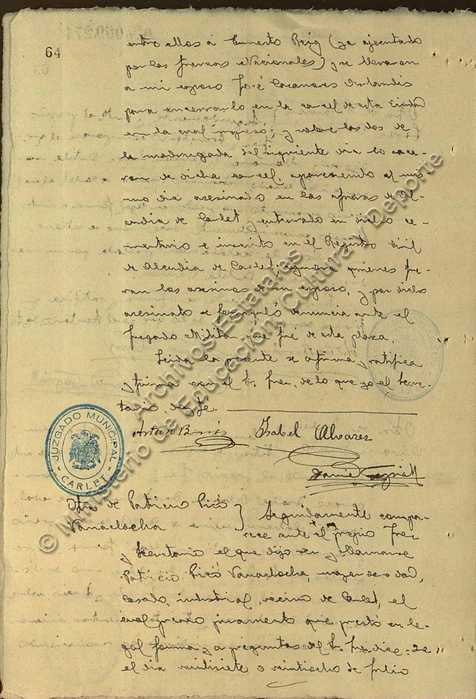 64
entre ellos á Cumerto Reig (ya ejecutado
por las fuerzas Nacionales) y se llevaron
a mi esposo José Casanoves
para encerrarlo en la carcel de esta Ciudad
en la cual ingreso; y sobre las dos de
la madrugada del siguiente dia lo saca-
ron de dicha carcel, apareciendo al mis-
mo dia asesinado en las afueras de Al-
cudia de Carlet y enterrado en dicho ce-
menterio e inscrito en el Registro Civil
de Alcudia de Carlet. Ignora quienes fue-
ran los asesinos de su esposo, y por dicho
asesinato se formuló denuncia ante el
Juzgado Militar de esta plaza.
Leida la presente se afirma y ratifica
y firma con el Sr. Juez, de lo que yo el Secre-
tario doy fe.
Isabel Alvarez
JUZGADO MUNICIPAL
CARLET
Otra de Patricio Picó
Vanaclocha
Seguidamente compa-
rece ante el propio Juez
y Secretario el que dijo ser y llamarse
Patricio Picó Vanaclocha mayor de edad,
casado industrial, vecino de Carlet, el
cual previo juramento que prestó en le-
gal forma y a preguntas del Sr. Juez dice:
el dia veintisiete o veintiocho de Julio
© Archivos Estatales
Ministerio de Educación, Cultura y Deporte